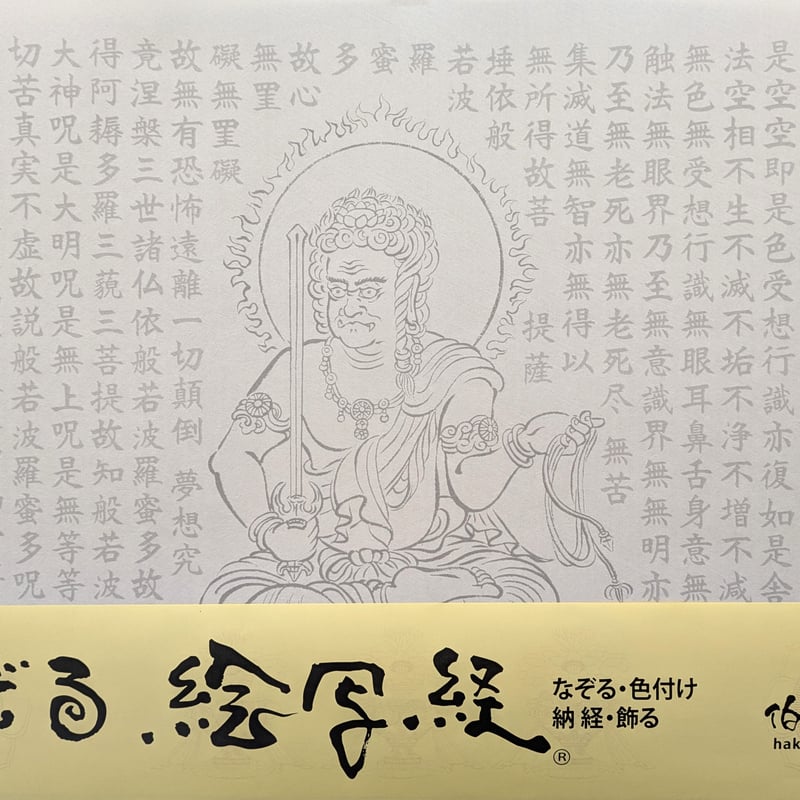 是空空即是色受想行識亦復如是舎
法空相不生不滅不垢不浄不増不減
無色無受想行識無眼耳鼻舌身意無
触法無眼界乃至無意識界無無明亦
乃至無老死亦無老死尽 無苦
集滅道無智亦無得以
無所得故菩 提薩
埵依般
若波
羅
蜜
多
故心
無罣
礙無罣礙
故無有恐怖遠離一切顛倒 夢想究
竟涅槃三世諸仏依般若波羅蜜多故
得阿耨多羅三藐三菩提故知般若波
大神呪是大明呪是無上呪是無等等
切苦真実不虚故説般若波羅蜜多呪
ぞる 絵写経®
なぞる・色付け
納経・飾る
伯
hak